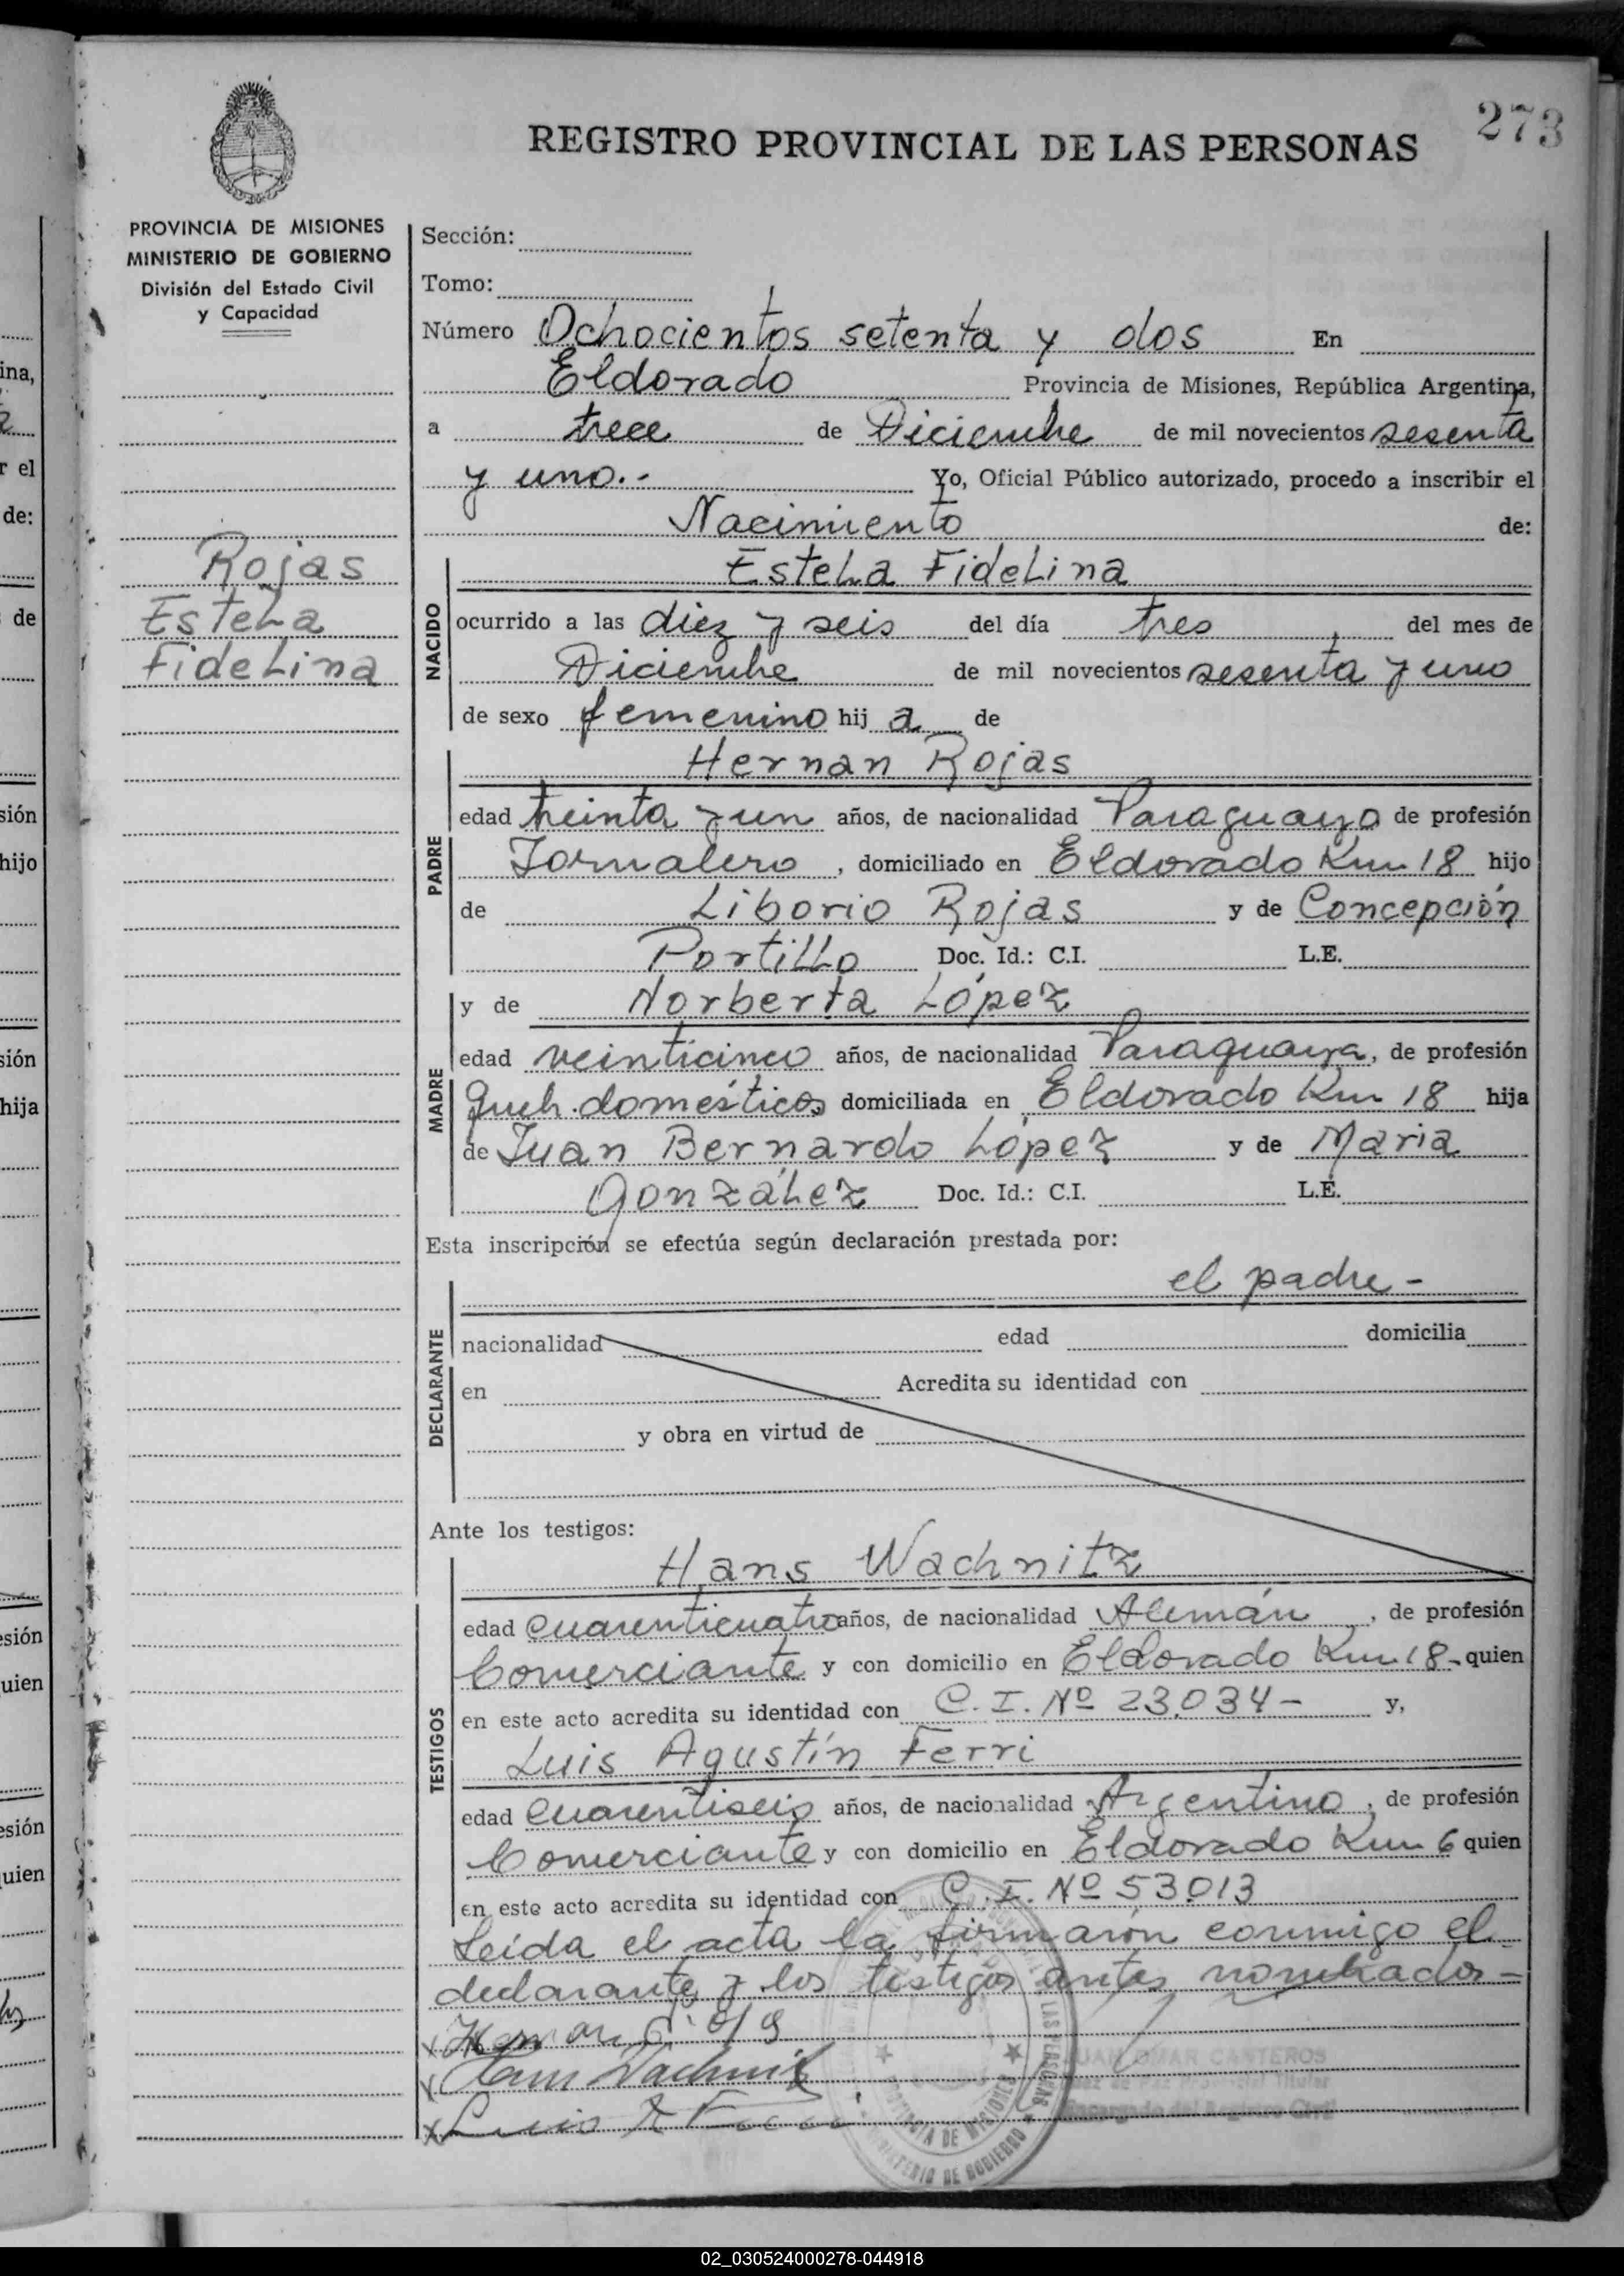 273
REGISTRO PROVINCIAL DE LAS PERSONAS
PROVINCIA DE MISIONES
MINISTERIO DE GOBIERNO
División del Estado Civil
y Capacidad
Rojas
Estela
Fidelina
Sección:
Tomo:
Número Ochocientos setenta y dos En
Eldorado Provincia de Misiones, República Argentina,
a trece de Diciembre de mil novecientos sesenta
y uno.- Yo, Oficial Público autorizado, procedo a inscribir el
Nacimiento de:
NACIDO
Estela Fidelina
ocurrido a las diez y seis del día tres del mes de
Diciembre de mil novecientos sesenta y uno
de sexo femenino hij a de
PADRE
Hernan Rojas
edad treinta y un años, de nacionalidad Paraguaya de profesión
Jornalero, domiciliado en Eldorado Km 18 hijo
de Liborio Rojas y de Concepción
Portillo Doc. Id.: C.I. L.E.
MADRE
y de Norberta López
edad veinticinco años, de nacionalidad Paraguaya, de profesión
Queh. domésticos domiciliada en Eldorado Km 18 hija
de Juan Bernardo López y de Maria
González Doc. Id.: C.I. L.E.
Esta inscripción se efectúa según declaración prestada por:
el padre -
DECLARANTE
nacionalidad edad domicilia
en Acredita su identidad con
y obra en virtud de
Ante los testigos:
TESTIGOS
Hans Wachnitz
edad cuarenticuatro años, de nacionalidad Alemán, de profesión
Comerciante y con domicilio en Eldorado Km 18- quien
en este acto acredita su identidad con C.I. Nº 23.034- y,
Luis Agustín Ferri
edad cuarentiseis años, de nacionalidad Argentino, de profesión
Comerciante y con domicilio en Eldorado Km 6 quien
en este acto acredita su identidad con C.I. Nº 53.013
Leída el acta la firmarón conmigo el
declarante y los testigos antes nombrados-
x Hernan
x Hans Wachnitz
x Luis A Ferri
JUAN OMAR CANTEROS
Juez de Paz Provincial Titular
Encargado del Registro Civil
PROVINCIA DE MISIONES
MINISTERIO DE GOBIERNO
02_030524000278-044918